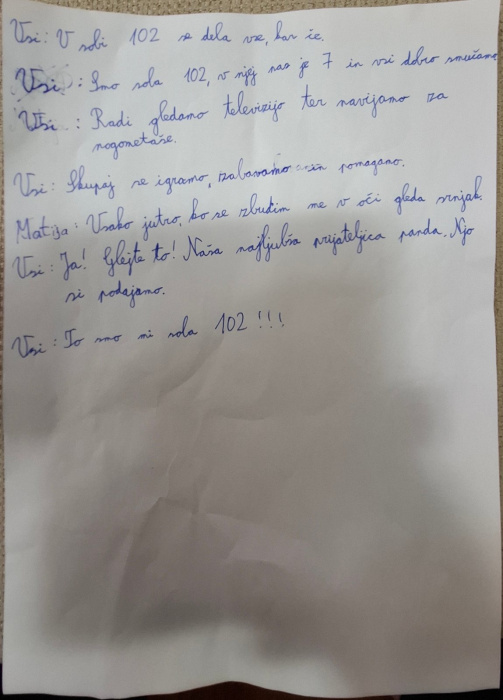 Vsi: V sobi 102 se dela vse, kar če.
Vsi: Smo soba 102, v njej nas je 7 in vsi dobro smučamo
Vsi: Radi gledamo televizijo ter navijamo za
nogometaše.
Vsi: Skupaj se igramo, zabavamo in pomagamo.
Matija: Vsako jutro, ko se zbudim me v oči gleda srnjak.
Vsi: Ja! Glejte to! Naša najljubša prijateljica panda. Njo
si podajamo.
Vsi: To smo mi soba 102!!!